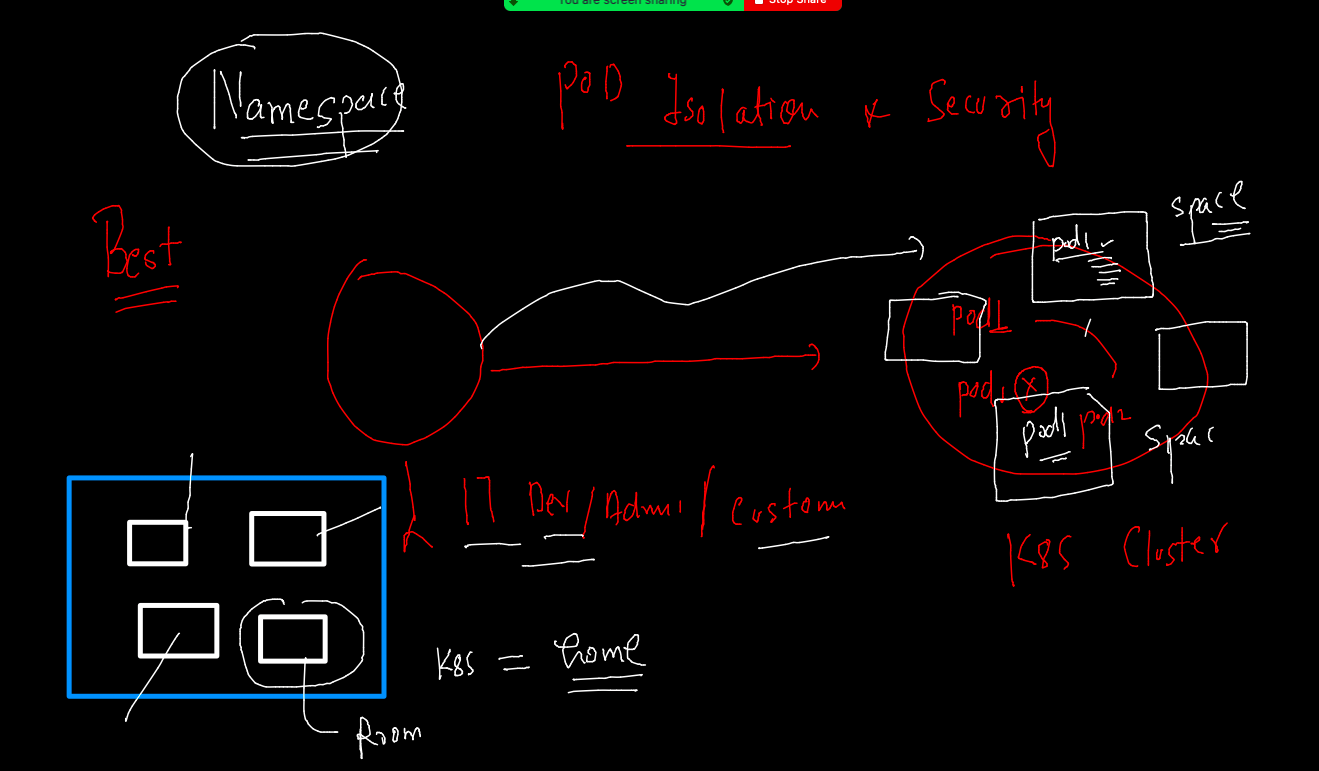 You are screen sharing Stop Share
Namespace
POD Isolation & Security
Best
space
pod1
pod1
pod1
pod1 pod2
spac
Dev/Admi/Custom
K8S Cluster
K8S = home
Room